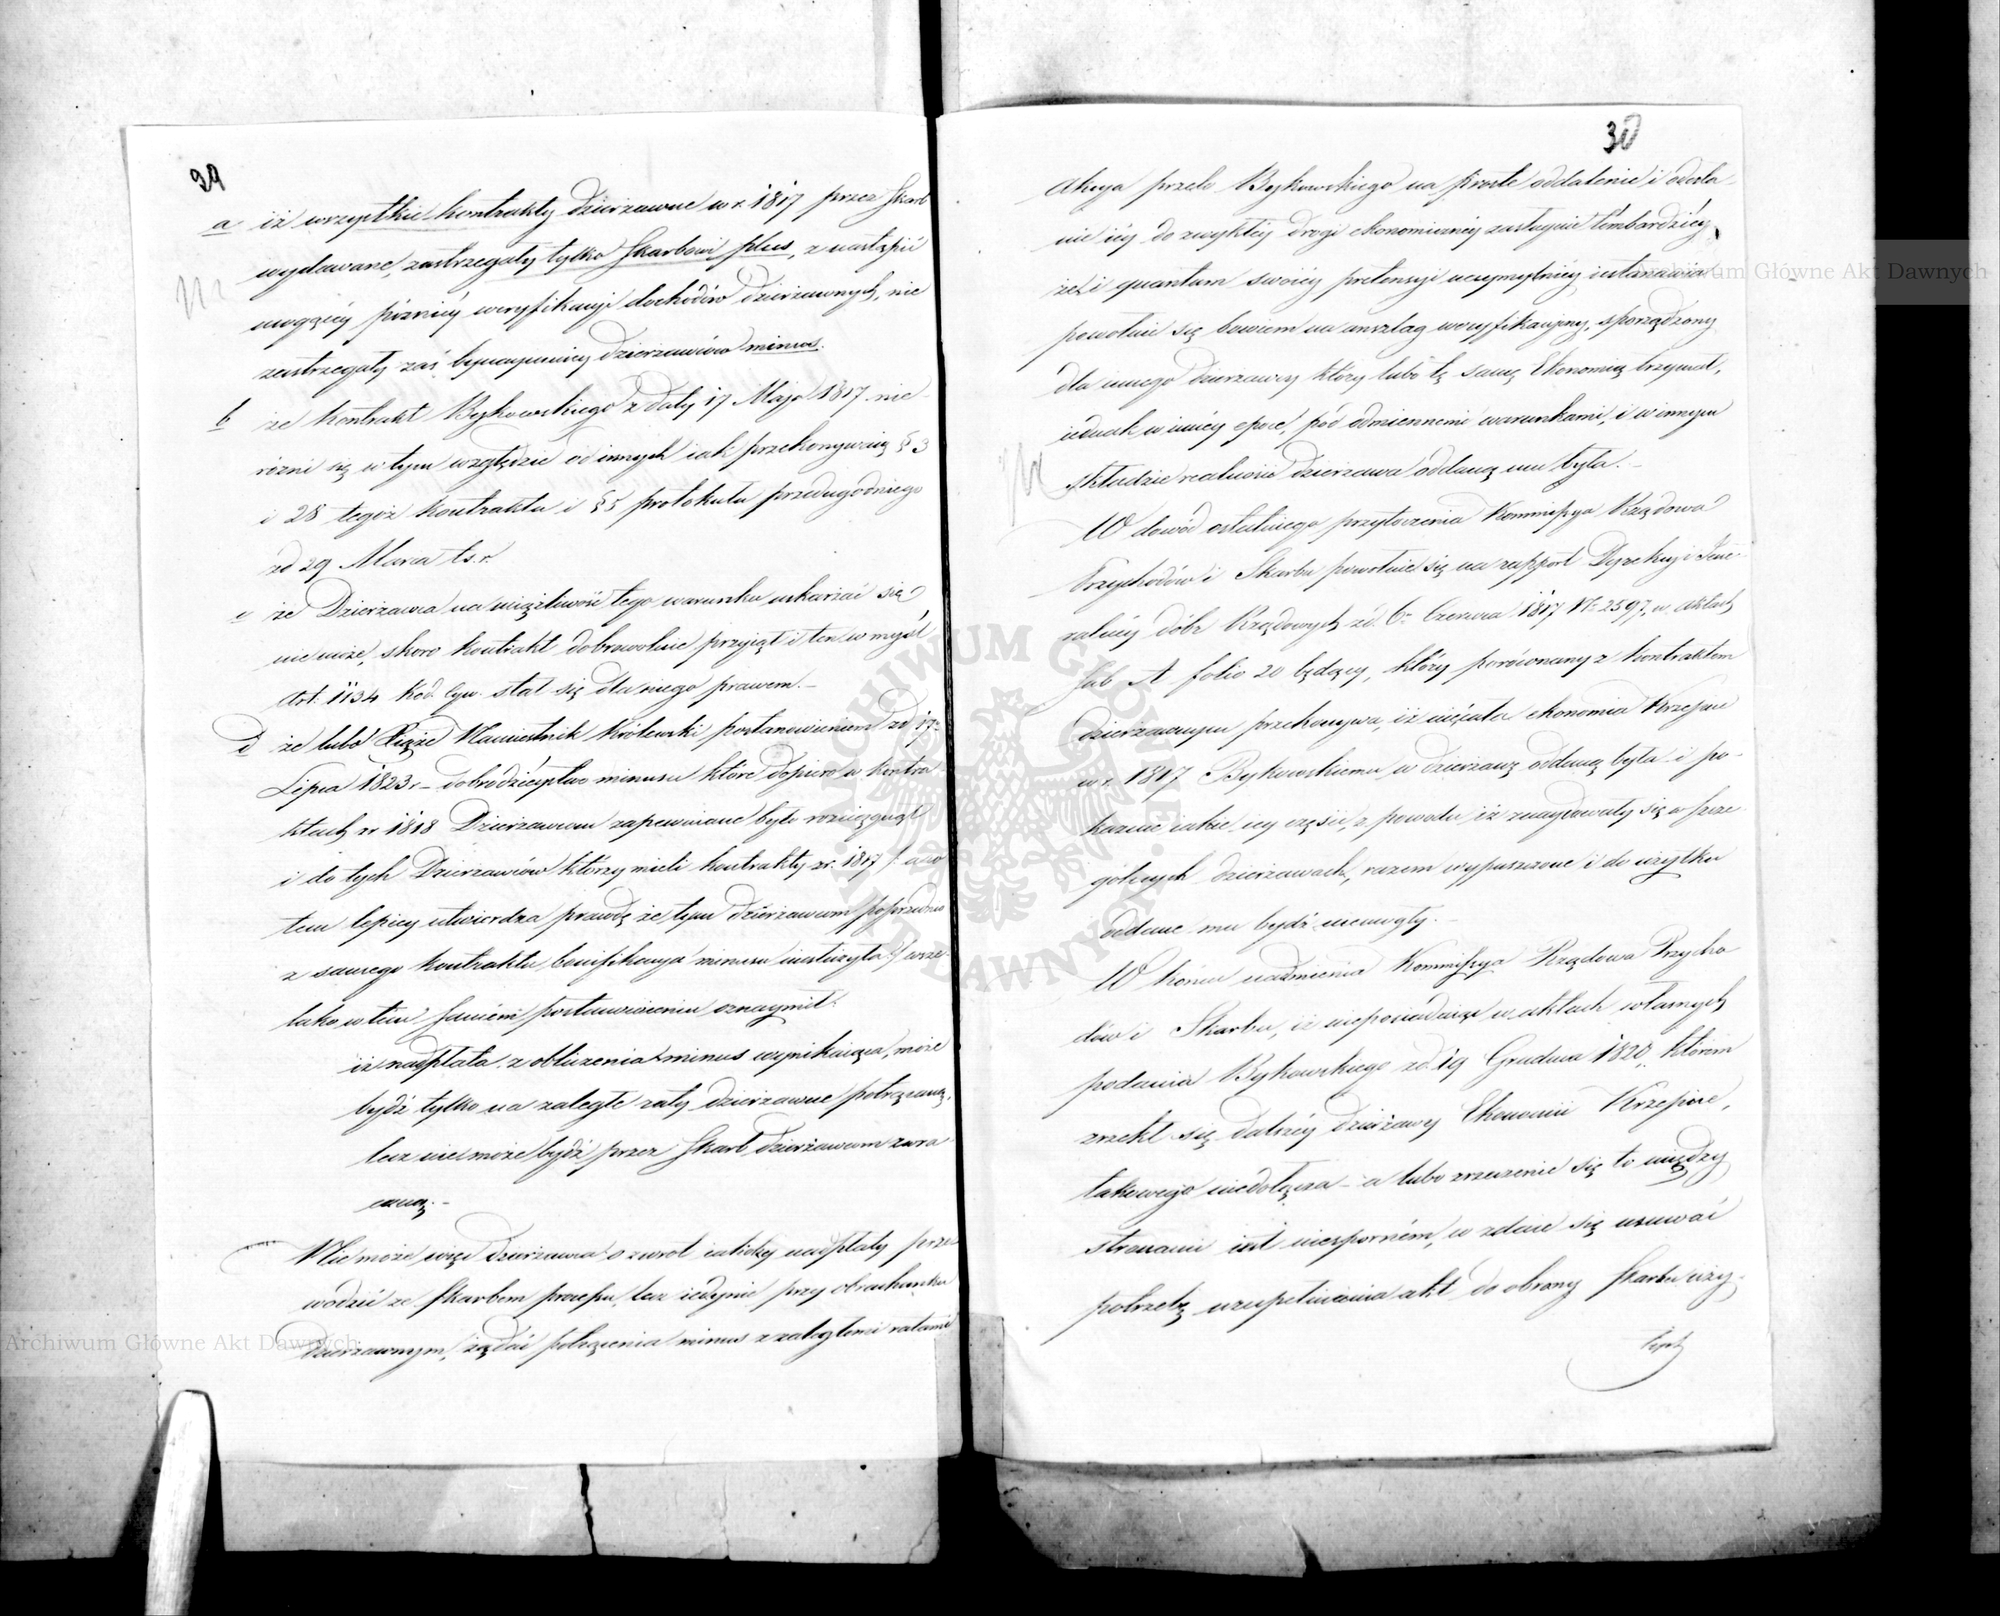 29
a iż wszystkie kontrakty dzierzawne w r. 1817 przez Skarb
wydawane, zastrzegały tylko Skarbowi plus, z nastąpić
mogącéy późniéy weryfikacyi dochodów dzierzawnych, nie
zastrzegały zaś bynaymniéy dzierzawców minus.
b że kontrakt Bykowskiego z daty 17 Maja 1817 nie
rózni się w tym względzie od innych iak przekonywaią § 3
i 28 tegoż kontraktu i § 5 protokułu przedugodniego
zd 29 Marca t. r.
c że Dzierzawca na uciążliwość tego warunku uskarżać się
nie może, skoro kontrakt dobrowolnie przyiął i ten w myśl
Art. 1134 Kod. Cyw. stał się dla niego prawem.
d że lubo Xiąże Namiestnik Królewski postanowieniem zd 17
Lipca 1823 r. dobrodzieystwo minusu które dopiero w kontra
ktach zr 1818 Dzierzawcom zapewniane było rozciągnął
i do tych Dzierzawców którzy mieli kontrakty zr. 1817 /: a co
tem lepiey utwierdza prawdę że tym dzierzawcom poprzednio
z samego kontraktu bonifikacya minusu niesłużyła :/ wsze
lako w tem samém postanowieniu oznaymił
iż nadpłata z obliczenia minus wynikaiąca, może
bydź tylko na zaległe raty dzierzawne potrącaną,
lecz nie może bydź przez Skarb dzierzawcom zwra
caną.
Nie może więc dzierzawca o zwrot iakiéy nadpłaty prze
wodzić ze Skarbem processu, lecz iedynie przy obrachunku
Dzierzawnym, żądać potrącenia minus z zaległemi ratami
30
Akcya przeto Bykowskiego na proste oddalenie i odesła
nie iéy do zwykłéy drogi ekonomicznéy zasługuie tembardziéy,
żeli quantum swoiéy pretensyi naymylniéy ustanawia
powołuie się bowiem na anszlag weryfikacyiny, sporządzony
dla innego dzierzawcy który lubo tę samę Ekonomią trzymał,
iednak w innéy epoce, pod odmiennemi warunkami, i w innym
składzie realności dzierzawa oddaną mu była.
W dowód ostatniego przytoczenia Kommissya Rządowa
Przychodów i Skarbu powołuie się na rapport Dyrekcyi Jene
ralnéy dóbr Rządowych zd. 6. Czerwca 1817 N. 2597, w aktach
sub A folio 20 będący, który porównany z kontraktem
dzierzawnym przekonywa, iż niecała ekonomia Krzepice
w r. 1817 Bykowskiemu w dzierzawę oddaną była i po
kazuie iakie iey części, z powodu iż znaydowały się w szcze
gólnych dzierzawach, razem wypuszczone i do użytku
oddane mu bydź niemogły.
W końcu nadmienia Kommissya Rządowa Przycho
dów i Skarbu, iż nieposiadaiąc w aktach własnych
podania Bykowskiego zd. 19 Grudnia 1820, którem
zrzekł się dalszéy dzierżawy Ekonomii Krzepice,
takowego niedołącza – a lubo zrzeczenie się to między
stronami iest niespornem, w zdaie się usuwać
potrzebę uzupełnienia akt do obrony Skarbu uży
tych